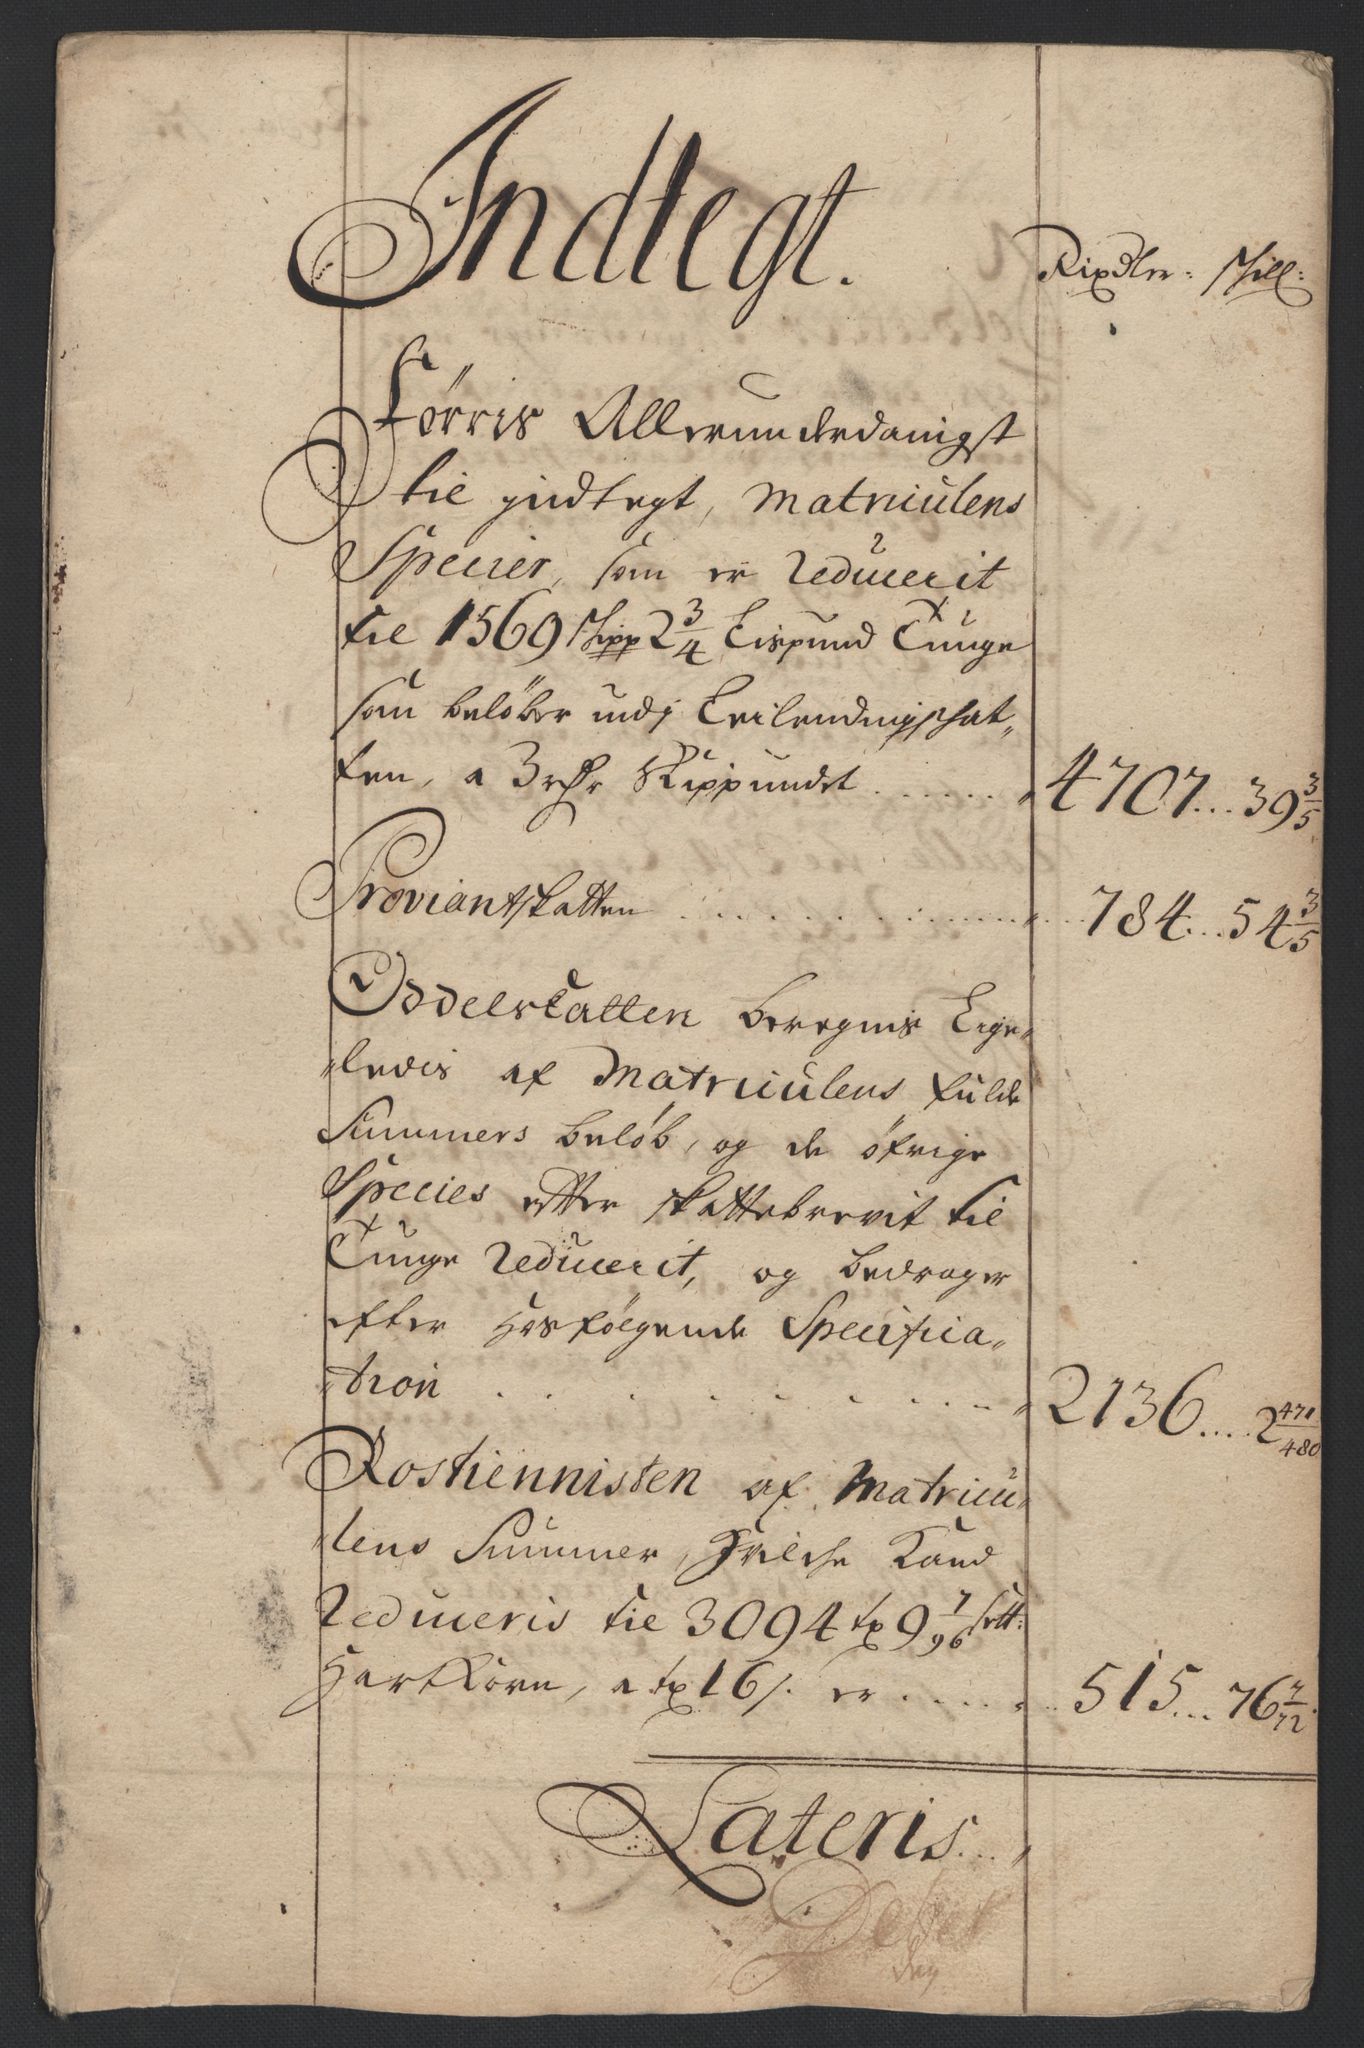 Indtegt.
Rixdlr: Skill:
Førris Allerunderdanigst
til jndtegt, Matriculens
Species, som er Reducerit
til 1569 Skipp 2 3/4 Lispund Tunge
som beløber udj Leilendingsskat-
ten, a 3 rdr Skippundet ...... 4707... 39 3/5
Proviantskatten ...... 784... 54 3/5
Oddelskatten beregnis Lige-
ledis af Matriculens fulde
Summers beløb, og de öfrige
Species efter skattebrevit til
Tunge Reducerit, og bedrager
efter Hosfølgende Specifica-
tion ...... 2136.... 2 471/480
Rostiennisten af Matricu-
lens Summer, Hvilche Land
Reduceris til 3094 tr 9 7/96 sett:
Hartkorn, a tr 16 s. er ...... 515... 76 7/72
Lateris...